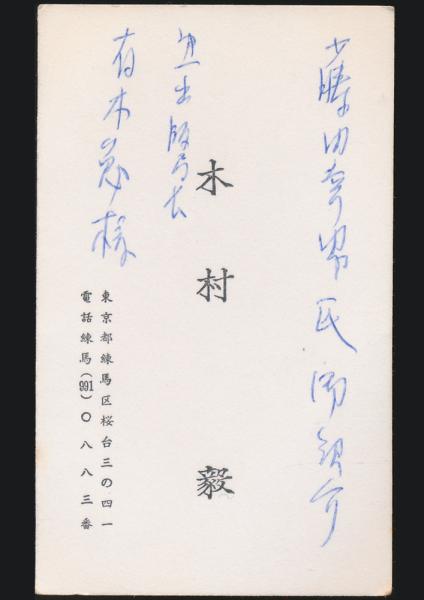 藤田幸男氏御紹介
木村毅
出版部長
有木勉様
東京都練馬区桜台三の四一
電話練馬(991)〇八八三番